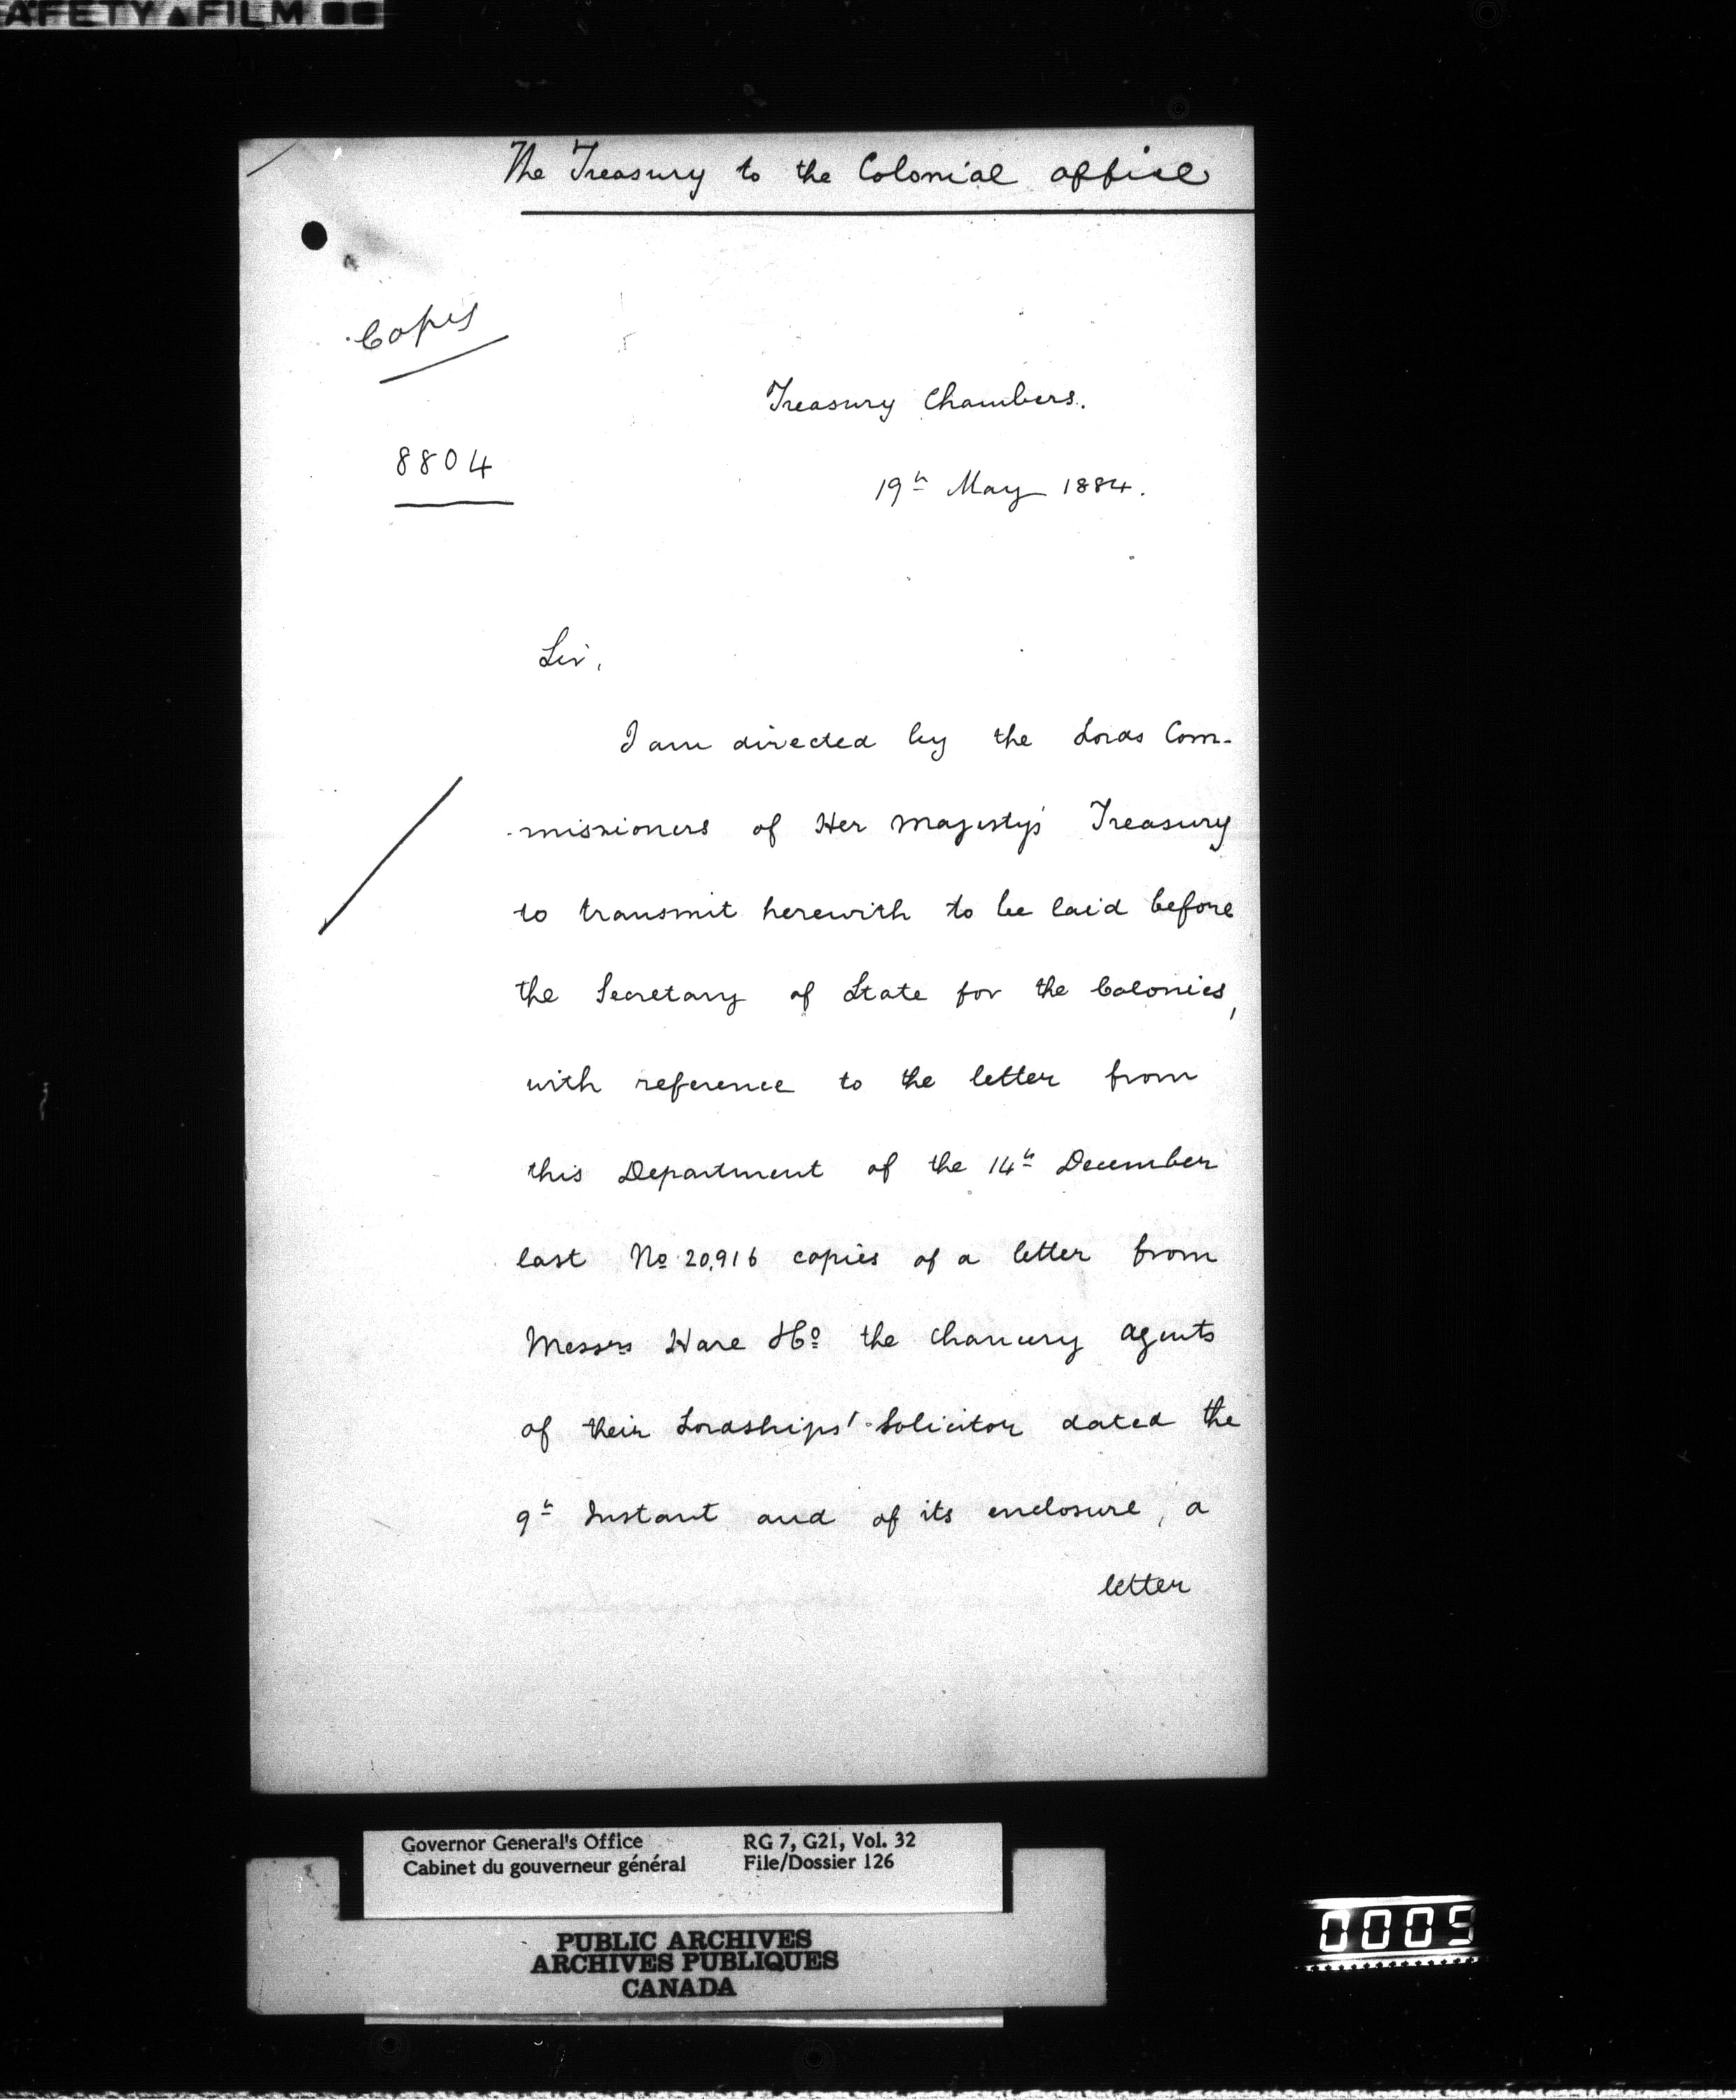 AFETY▲FILM
The Treasury to the Colonial Office
Copy
Treasury Chambers.
8804
19th May 1884.
Sir,
I am directed by the Lords Com-
-missioners of Her Majesty's Treasury
to transmit herewith to be laid before
the Secretary of State for the Colonies,
with reference to the letter from
this Department of the 14th December
last No 20,916 copies of a letter from
Messrs Hare & Co the Chancery Agents
of their Lordships' Solicitor dated the
9th Instant and of its enclosure, a
letter
Governor General's Office RG 7, G21, Vol. 32
Cabinet du gouverneur général File/Dossier 126
PUBLIC ARCHIVES
ARCHIVES PUBLIQUES
CANADA
0005